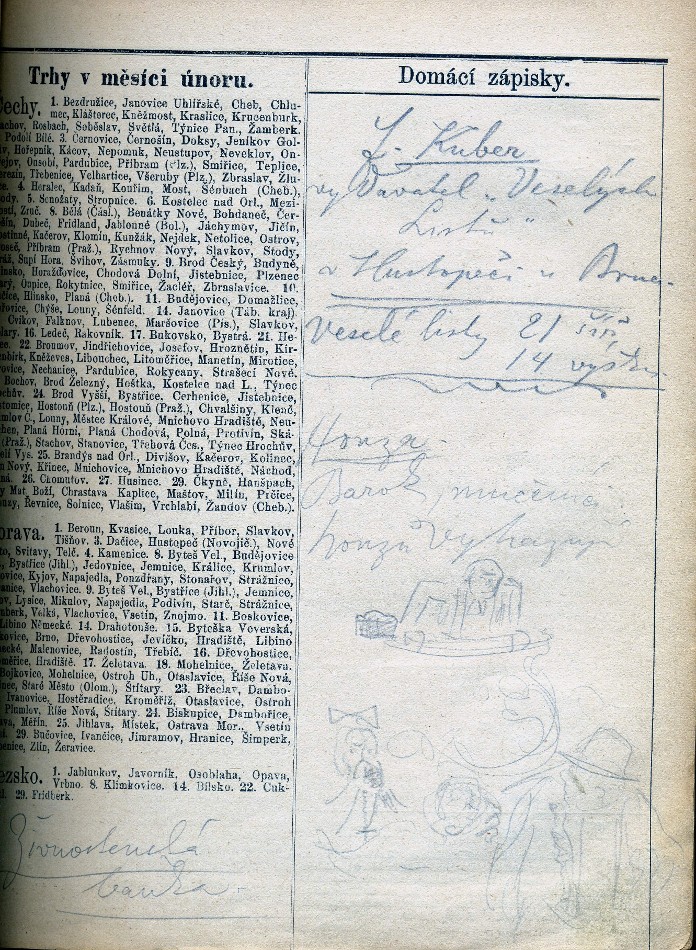 Trhy v měsíci únoru.
Čechy. 1. Bezdružice, Janovice Uhlířské, Cheb, Chlu-
mec, Klášterec, Kněžmost, Kraslice, Krucenburk,
Rosbach, Soběslav, Světlá, Týnice Pan., Žamberk.
Podolí Bílé. 3. Černovice, Černošín, Doksy, Jeníkov Gol-
Hořepník, Kácov, Nepomuk, Neustupov, Neveklov, On-
Onsobí, Pardubice, Příbram (Plz.), Smiřice, Teplice,
Třebenice, Velhartice, Všeruby (Plz.), Zbraslav, Žlu-
4. Heralec, Kadaň, Kouřim, Most, Šénbach (Cheb.),
5. Senožaty, Stropnice. 6. Kostelec nad Orl., Mezi-
Zruč. 8. Bělá (Čásl.), Benátky Nové, Bohdaneč, Čer-
Dubeč, Fridland, Jablonné (Bol.), Jáchymov, Jičín,
Kačerov, Klomín, Kunžák, Nejdek, Netolice, Ostrov,
Příbram (Praž.), Rychnov Nový, Slavkov, Stody,
Supí Hora, Švihov, Zásmuky. 9. Brod Český, Budyně,
Horažďovice, Chodová Dolní, Jistebnice, Plzenec
Ounpice, Rokytnice, Smiřice, Žacléř, Zbraslavice. 10.
Hlinsko, Planá (Cheb.). 11. Budějovice, Domažlice,
Chýše, Louny, Šénfeld. 14. Janovice (Táb. kraj).
Cvikov, Falknov, Lubenec, Maršovice (Pís.), Slavkov,
16. Ledeč, Rakovník. 17. Bukovsko, Bystrá. 21. He-
22. Broumov, Jindřichovice, Josefov, Hroznětín, Kir-
Kněževes, Libouchec, Litoměřice, Manetín, Mirotice,
Nechanice, Pardubice, Rokycany, Strašecí Nové.
Bochov, Brod Železný, Hoštka, Kostelec nad L., Týnec
24. Brod Vyšší, Bystřice, Cerhenice, Jistebnice,
Hostouň (Plz.), Hostouň (Praž.), Chvalšiny, Kleneč,
Louny, Městec Králové, Mnichovo Hradiště, Neu-
Planá Horní, Planá Chodová, Polná, Protivín, Ská-
(Praž.), Stachov, Stanovice, Třebová Čes., Týnec Hrochův,
Vys. 25. Brandýs nad Orl., Divišov, Kačerov, Kolinec,
Nový, Křinec, Mnichovice, Mnichovo Hradiště, Náchod,
26. Chomutov. 27. Husinec. 29. Čkyně, Hanšpach,
Mat. Boží, Chrastava Kaplice, Maštov, Milín, Prčice,
Řevnice, Solnice, Vlašim, Vrchlabí, Žandov (Cheb.).
Morava. 1. Beroun, Kvasice, Louka, Příbor, Slavkov,
Tišňov. 3. Dačice, Hustopeč (Novojič.), Nové
Svitavy, Telč. 4. Kamenice. 8. Byteš Vel., Budějovice
Bystřice (Jihl.), Jedovnice, Jemnice, Králice, Krumlov,
Kyjov, Napajedla, Pouzdřany, Stonařov, Strážnice,
Vlachovice. 9. Byteš Vel., Bystřice (Jihl.), Jemnice,
Lysice, Mikulov, Napajedla, Podivín, Staré, Strážnice,
Velká, Vlachovice, Vsetín, Znojmo. 11. Boskovice,
Libino Německé. 14. Drahotouše. 15. Byteška Veverská,
Brno, Dřevohostice, Jevíčko, Hradiště, Libino
Malenovice, Radostín, Třebíč. 16. Dřevohostice,
Hradiště. 17. Želetava. 18. Mohelnice, Želetava.
Bojkovice, Mohelnice, Ostroh Uh., Otaslavice, Říše Nová,
Staré Město (Olom.), Štítary. 23. Břeclav, Dambo-
Ivanovice, Hostěradice, Kroměříž, Otaslavice, Ostroh
Plumlov, Říše Nová, Štítary. 24. Biskupice, Dambořice,
Měřín. 25. Jihlava, Místek, Ostrava Mor., Vsetín
29. Bučovice, Ivančice, Jimramov, Hranice, Šimperk,
Zlín, Žeravice.
Slezsko. 1. Jablunkov, Javorník, Osoblaha, Opava,
Vrbno. 8. Klimkovice. 14. Bílsko. 22. Cuk-
29. Fridberk.
Živnostenská
banka.
Domácí zápisky.
J. Kuber
vydavatel „Veselých
Listů“
v Hustopeči u Brna.
Veselé listy 21 šíř
14 výška
Honza.
Barok, mučená
honzu vyhazují